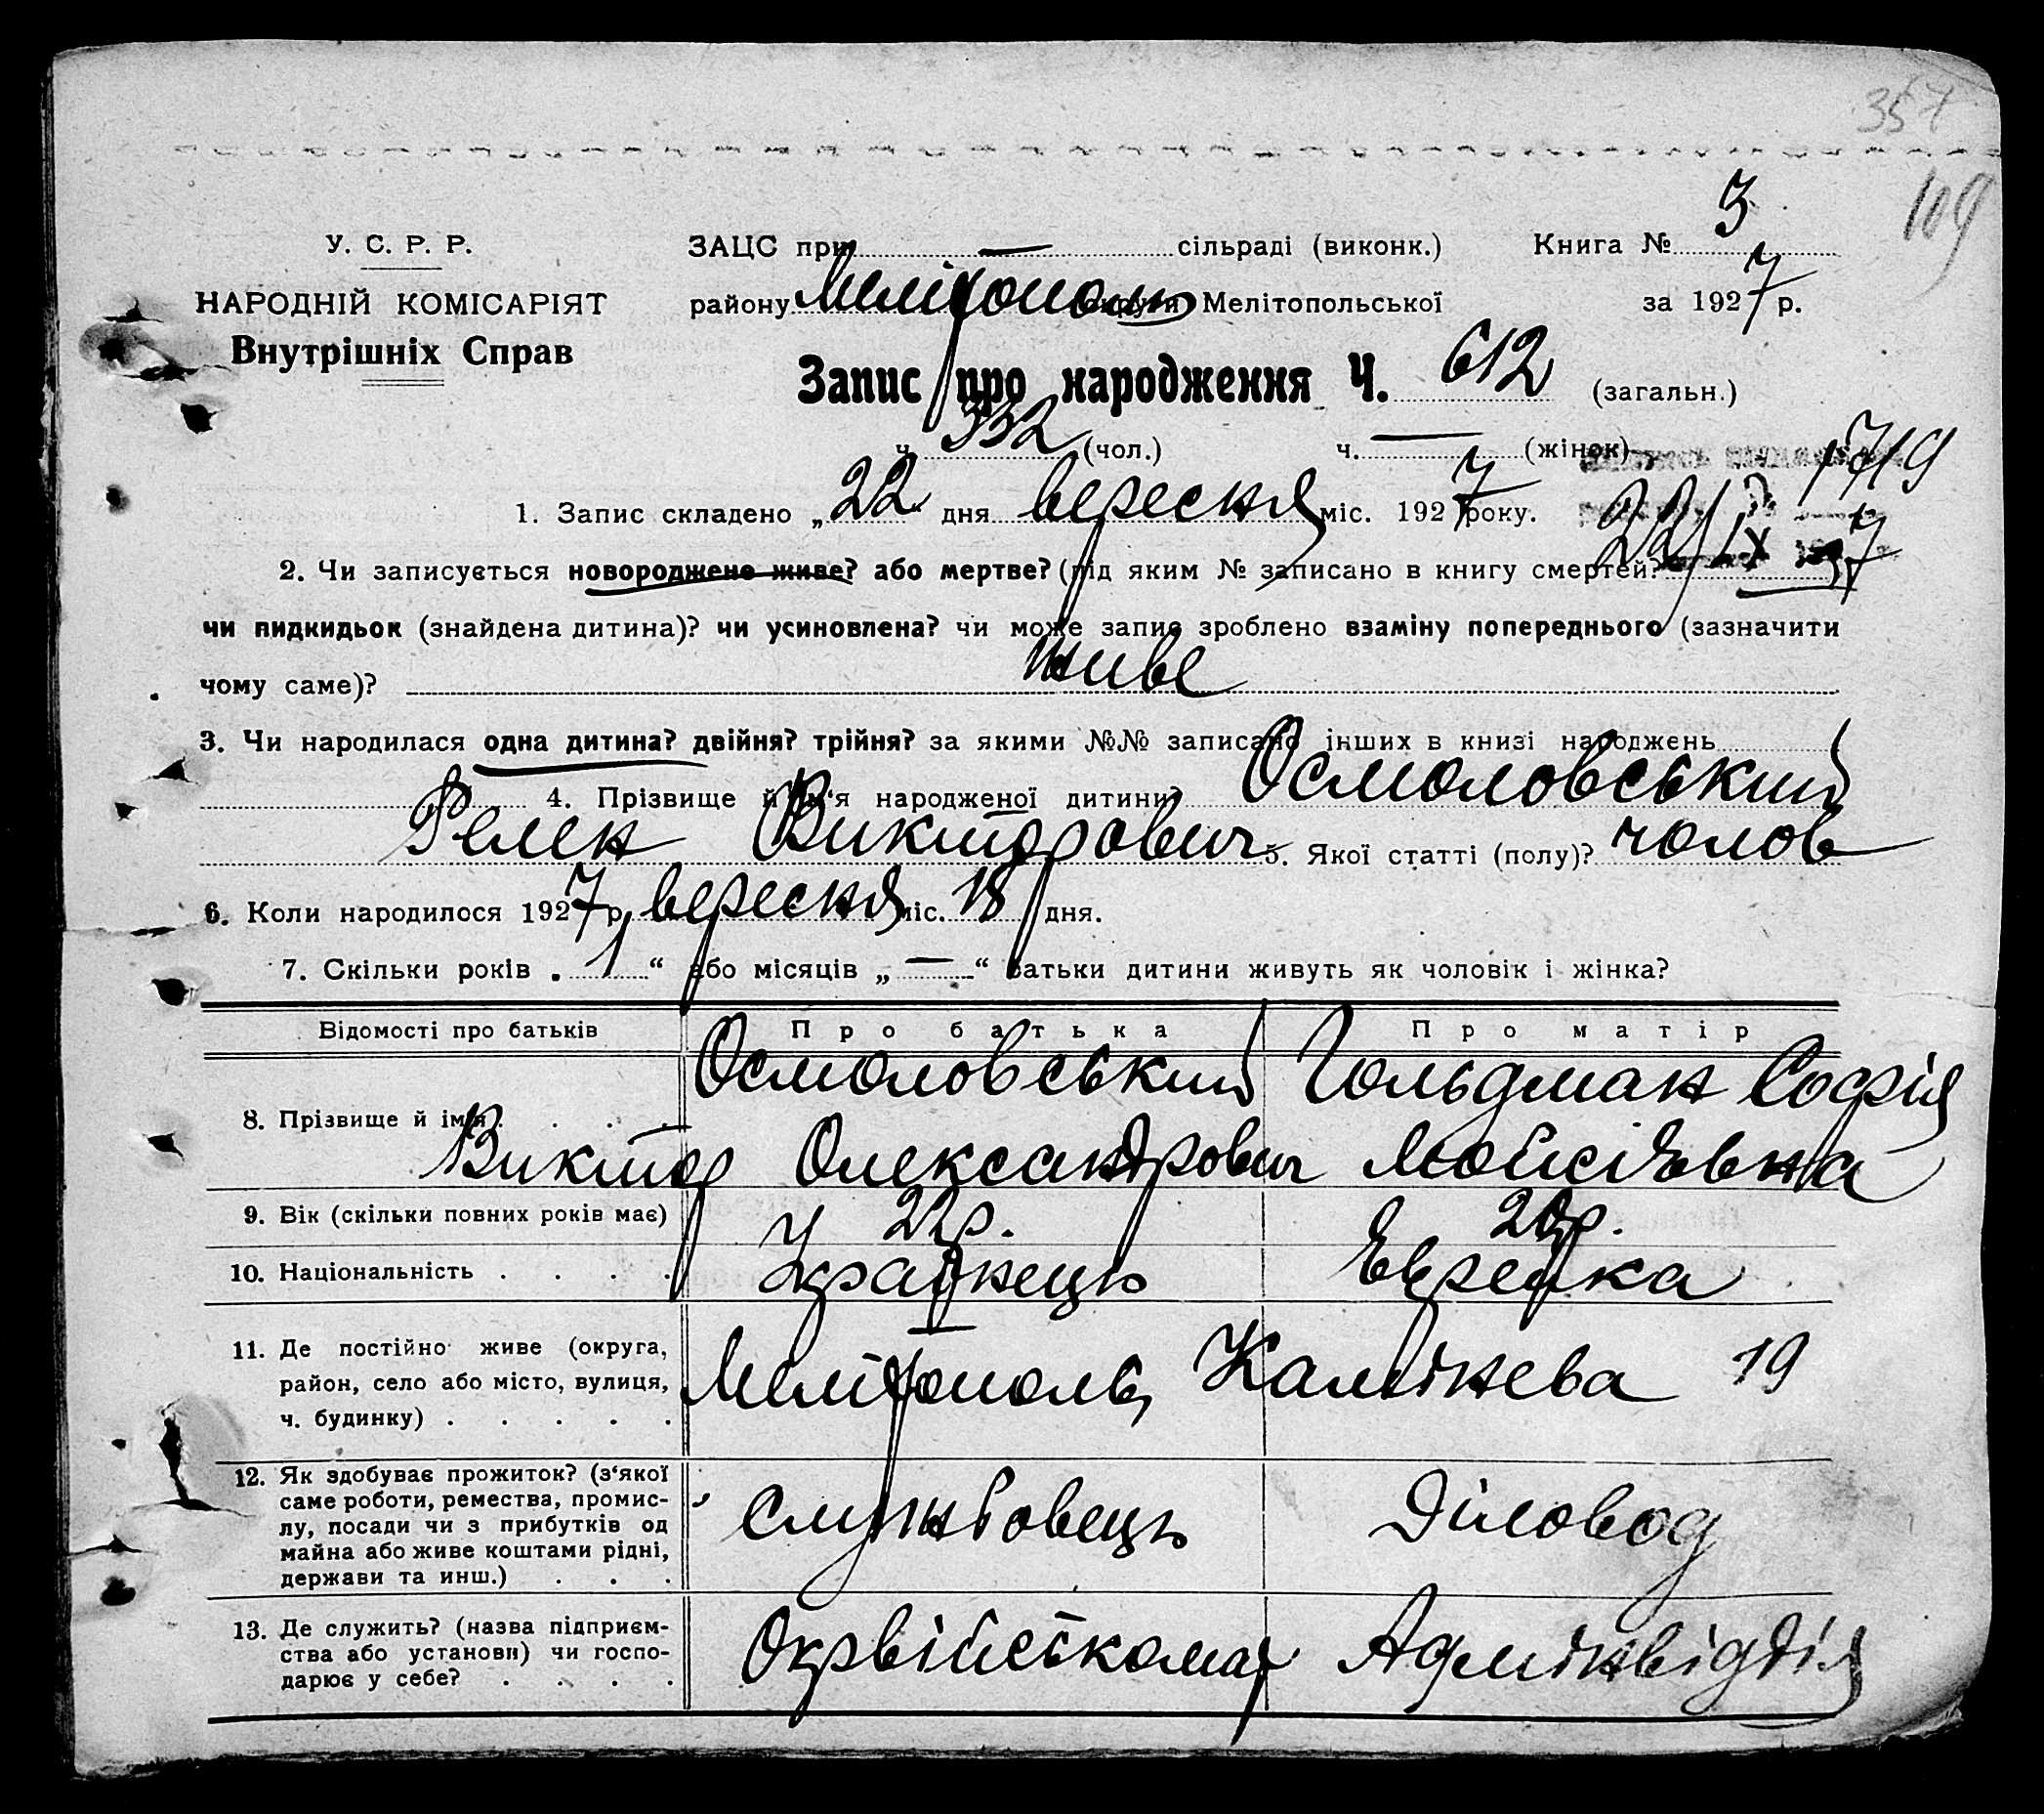 357
109
У. С. Р. Р.
НАРОДНІЙ КОМІСАРІЯТ
Внутрішніх Справ
ЗАЦС при — сільраді (виконк.)
Книга № 3
району Мелітополь округи Мелітопольської
за 1927 р.
Запис про народження Ч. 612 (загальн.)
ч. 332 (чол.) ч. — (жінок)
1719
1. Запис складено „22“ дня вересня міс. 1927 року.
22/IX 7
2. Чи записується новороджене живе? або мертве? (під яким № записано в книгу смертей?
чи пидкидьок (знайдена дитина)? чи усиновлена? чи може запис зроблено взаміну попереднього (зазначити
чому саме)? живе
3. Чи народилася одна дитина? двійня? трійня? за якими №№ записано інших в книзі народжень
4. Прізвище й ім'я народженої дитини? Осмоловський
Релен Виктрович 5. Якої статті (полу)? чолов
6. Коли народилося 1927 р. вересня міс. 18 дня.
7. Скільки років „1“ або місяців „—“ батьки дитини живуть як чоловік і жінка?
Відомості про батьків
Про батька
Про матір
8. Прізвище й ім'я . . . .
Осмоловський
Виктор Олександрович
Гольдман Софія
Мойсієвна
9. Вік (скільки повних років має)
22р.
20р.
10. Національність . . . .
Українець
Еврейка
11. Де постійно живе (округа,
район, село або місто, вулиця,
ч. будинку) . . . . .
Мелітополь, Камінева 19
12. Як здобуває прожиток? (з'якої
саме роботи, ремества, промис-
лу, посади чи з прибутків од
майна або живе коштами рідні,
держави та инш.) . . .
Службовець
Діловод
13. Де служить? (назва підприєм-
ства або установи) чи госпо-
дарює у себе? . . . .
Окрвійськомат
Адмінвідділ